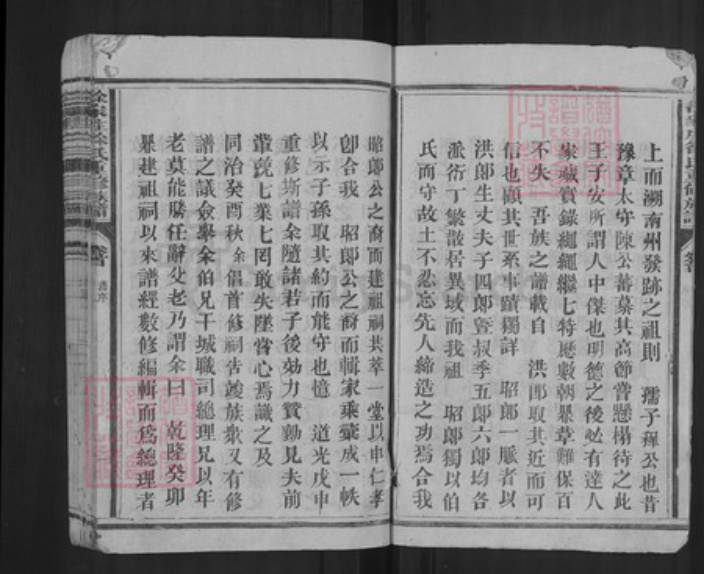 上而溯南州發跡之祖則　孺子穉公也昔
豫章太守陳公蕃慕其高節嘗懸榻待之此
王子安所謂人中傑也明德之後必有達人
家藏實錄繩繩繼七特歷數朝暴章難保百
不失　吾族之譜載自　洪郎取其近而可
信也顧其世系事蹟獨詳　昭郎一脈者以
洪郎生丈夫子四郎暨叔季五郎六郎均各
派衍丁繁散居異域而我祖　昭郎獨以伯
氏而守故土不忍忘先人締造之功焉合我
昭郎公之裔而建祖祠共萃一堂以申仁孝
卽合我　昭郎公之裔而輯家乘彙成一帙
以示子孫取其約而能守也憶　道光戊申
重修斯譜余隨諸君子後効力贊勷見夫前
輩兢七業七罔敢失墜嘗心焉識之及
同治癸酉秋余倡首修祠告竣族衆又有修
譜之議僉舉余伯兄干城職司總理兄以年
老莫能勝任辭父老乃謂余曰　乾隆癸卯
暴建祖祠以來譜經數修編輯而爲總理者
徐氏重修族譜
卷首
舊序